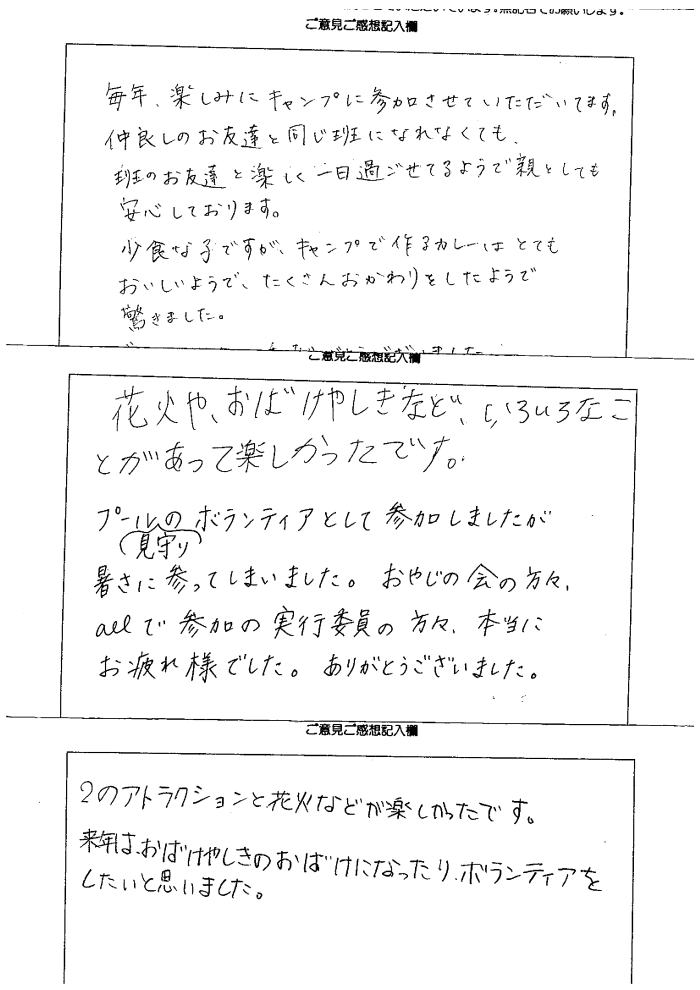 ご意見ご感想記入欄
毎年、楽しみにキャンプに参加させていただいてます。
仲良しのお友達と同じ班になれなくても、
班のお友達と楽しく一日過ごせてるようで親としても
安心しております。
少食な子ですが、キャンプで作るカレーはとても
おいしいようで、たくさんおかわりをしたようで
驚きました。
ご意見ご感想記入欄
花火や、おばけやしきなど、いろいろなこ
とがあって楽しかったです。
プールのボランティアとして参加しましたが
(見守り)
暑さに参ってしまいました。おやじの会の方々、
allで参加の実行委員の方々、本当に
お疲れ様でした。ありがとうございました。
ご意見ご感想記入欄
2のアトラクションと花火などが楽しかったです。
来年は、おばけやしきのおばけになったり、ボランティアを
したいと思いました。